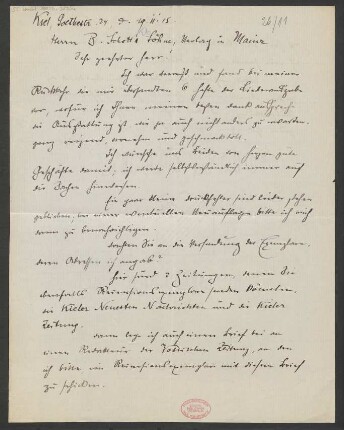 Kiel, Goethestr. 24 d. 19 II 15.
26/11
Herrn B. Schott's Söhne, Verlag in Mainz
Sehr geehrter Herr!
Ich war verreist und fand bei meiner
Rückkehr die mir übersandten 6 Hefte der Liederausgabe
vor, wofür ich Ihnen meinen besten Dank ausspreche.
Die Ausstattung ist wie ja auch nicht anders zu erwarten
ganz reizend, vornehm und geschmackvoll.
Ich wünsche uns beiden von Herzen gute
Geschäfte damit; ich werde selbstverständlich immer auf
die Sachen hinweisen.
Ein paar kleine Druckfehler sind leider stehen
geblieben, bei einer eventuellen Neuauflage bitte ich mich
dann zu benachrichtigen.
Dachten Sie an die Versendung der Exemplare,
deren Adressen ich angab?
Hier sind 2 Zeitungen, denen Sie
ebenfalls Rezensionsexemplare senden könnten,
die Kieler Neuesten Nachrichten und die Kieler
Zeitung.
Dann lege ich auch einen Brief bei an
einen Redakteur der Vossischen Zeitung, an den
ich bitte ein Rezensionsexemplar mit diesem Brief
zu schicken.